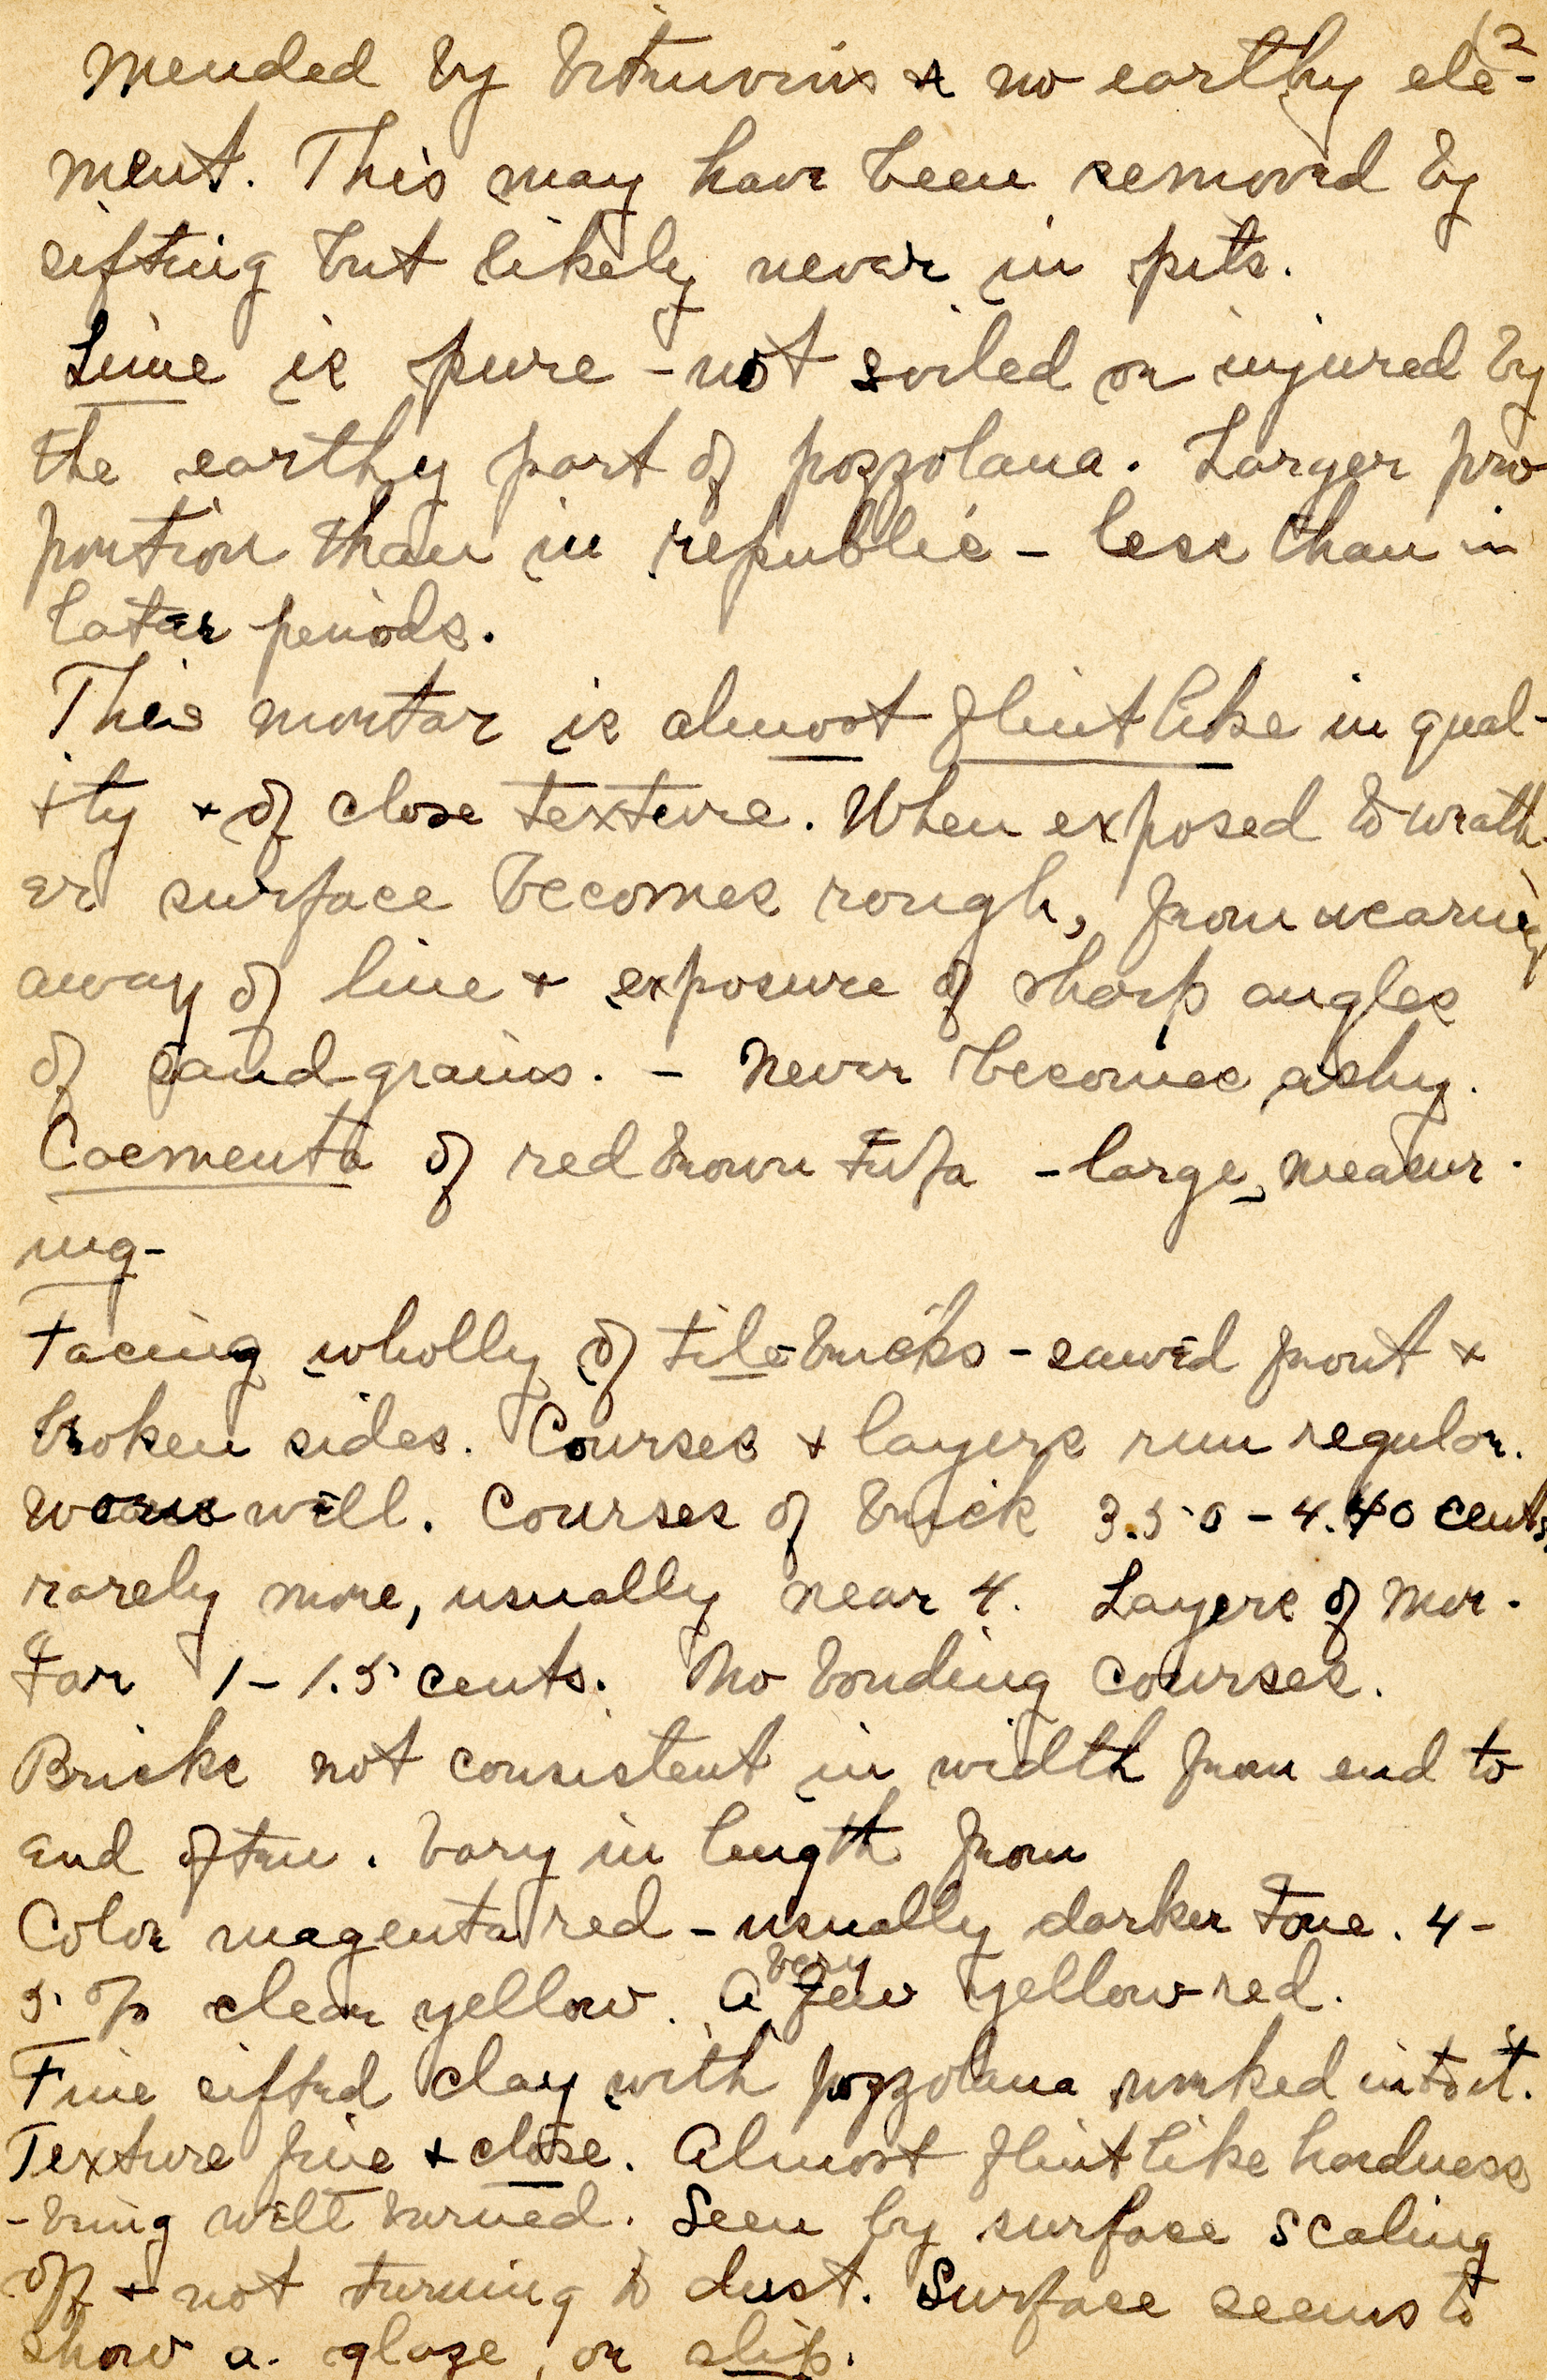 (2
mended by Vitruvius & no earthy ele-
ment. This may have been removed by
sifting but likely never in pits.
Lime is pure - not soiled or injured by
the earthy part of pozzolana. Larger pro
portion than in republic - less than in
later periods.
This mortar is almost flintlike in qual-
ity & of close texture. When exposed to weath-
er surface becomes rough, from wearing
away of lime & exposure of sharp angles
of sand grains. - Never becomes ashy.
Caementa of red brown tufa - large, measur-
ing-
Facing wholly of tile-bricks - sawed front &
broken sides. Courses & layers run regular.
will. Courses of brick 3.50 - 4.40 cents.
rarely more, usually near 4. Layers of mor-
tar 1-1.5 cents. No bonding courses.
Bricks not consistent in width from end to
end often. Vary in length from
Color magenta red - usually darker tone. 4-
5 % clear yellow. A very few yellow-red.
Fine sifted clay with pozzolana worked into it.
Texture fine & close. Almost flintlike hardness
- being well burned. Seen by surface scaling
off & not turning to dust. Surface seems to
show a glaze, or slip.